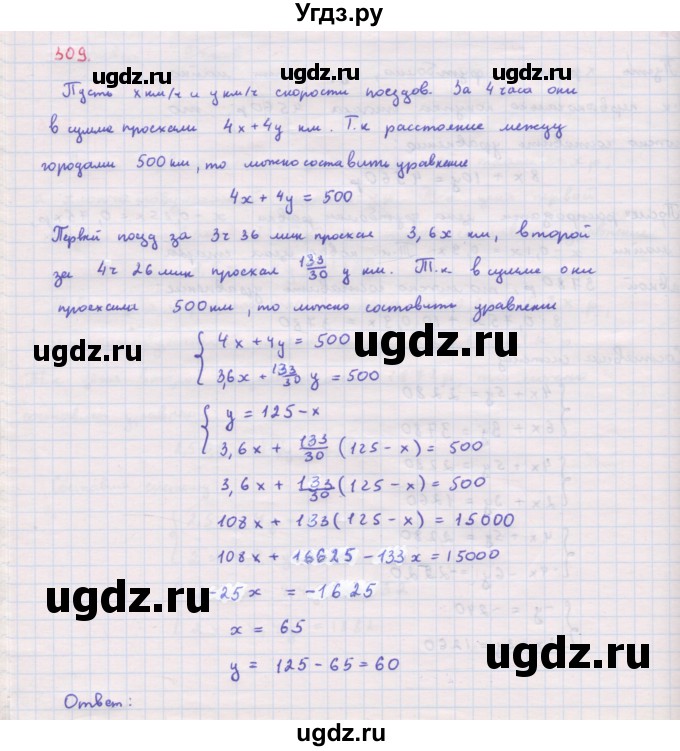 Угдз.ру
309.
Пусть x км/ч и y км/ч скорости поездов. За 4 часа они
в сумме проехали 4x+4y км. Т.к расстояние между
городами 500 км, то можно составить уравнение
4x + 4y = 500
Первый поезд за 3ч 36 мин проехал 3,6x км, второй
за 4ч 26 мин проехал 133/30 y км. Т.к в сумме они
проехали 500 км, то можно составить уравнение
{ 4x+4y = 500
3,6x + 133/30 y = 500
{ y = 125-x
3,6x + 133/30 (125-x) = 500
3,6x + 133/30 (125-x) = 500
108x + 133(125-x) = 15000
108x + 16625 - 133x = 15000
-25x = -1625
x = 65
y = 125-65=60
Ответ:
ugdz.ru
ugdz.ru
ugdz.ru
ugdz.ru
ugdz.ru
ugdz.ru
ugdz.ru
ugdz.ru